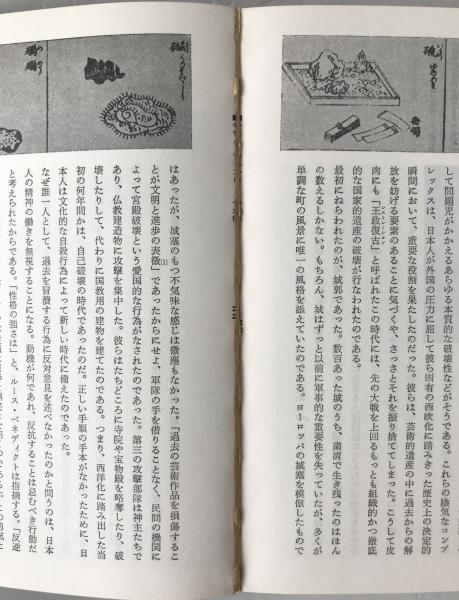 して問題児がかかえるあらゆる本質的な破壊性などがそうである。これらの陰気なコンプ
レックスは、日本人が外国の圧力に屈して彼ら固有の西欧化に踏みきった歴史上の決定的
瞬間において、重要な役割を果たしたのだった。彼らは、芸術的遺産の中に過去からの解
放を妨げる要素のあることに気づくや、さっさとそれを振り捨ててしまった。こうして皮
肉にも「王政復古」と呼ばれたこの時代には、先の大戦を上回るもっとも組織的かつ徹底
的な国家的遺産の破壊が行なわれたのである。
最初にねらわれたのが、城郭であった。数百あった城のうち、粛清で生き残ったのはほん
の数えるしかない。もちろん、城はずっと以前に軍事的な重要性を失っていたが、多くが
単調な町の風景に唯一の風格を添えていたのである。ヨーロッパの城塞を模倣したもので
はあったが、城塞のもつ不気味な感じは微塵もなかった。「過去の芸術作品を損傷するこ
とが文明と進歩の表徴」であったからにせよ、軍隊の手を借りることなく、民間の機関に
よって宮殿破壊という愛国的な行為がなされたのであった。第三の攻撃部隊は神主たちで
あり、仏教建造物に攻撃を集中した。彼らはたちどころに寺院や宝物殿を略奪したり、破
壊したりして、代わりに国教用の建物を建てたのである。つまり、西洋化に踏み出した当
初の何年間かは、自己破壊の時代であったのだ。正しい手順の手本がなかったために、日
本人は文化的な自殺行為によって新しい時代に備えたのであった。
なぜ誰一人として、過去を冒瀆する行為に反対意見を述べなかったのかと問うのは、日本
人の精神の働きを無視することになる。動機が何であれ、反抗することは忌むべき行動だ
と考えられたからである。「性格の強さは」と、ルース・ベネディクトは指摘する。「反逆